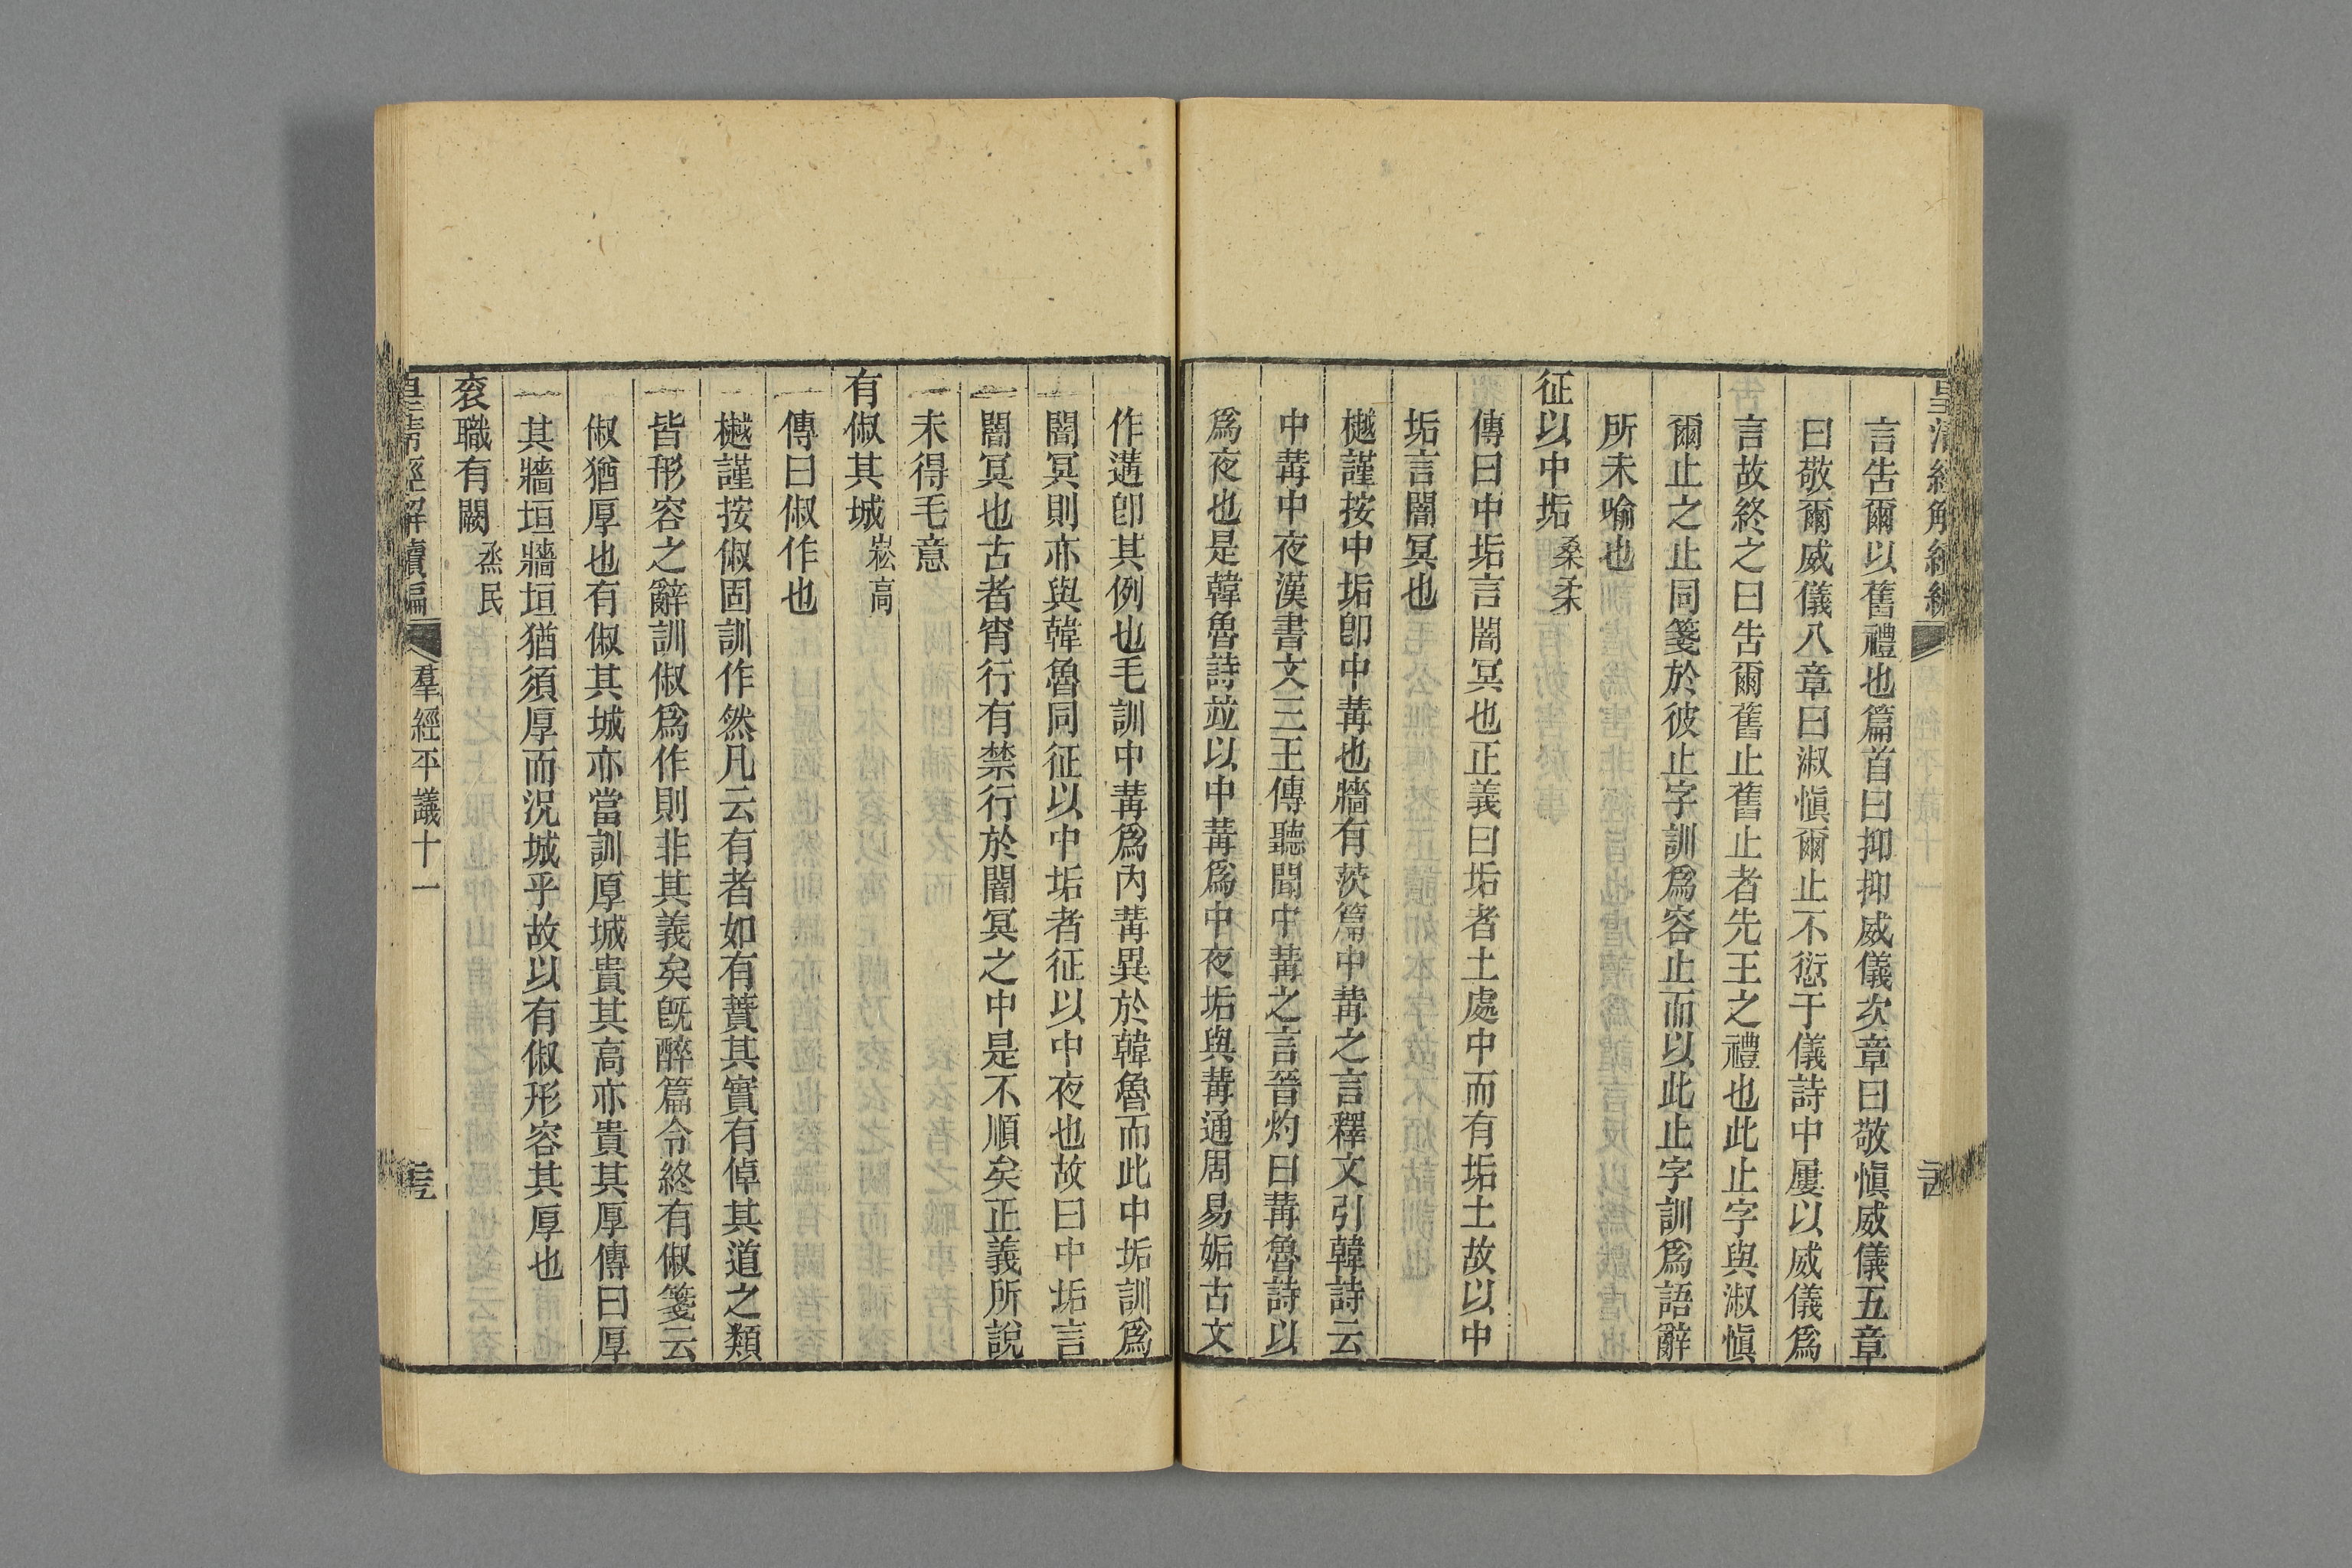 言告爾以舊禮也篇首曰抑抑威儀次章曰敬愼威儀五章
曰敬爾威儀八章曰淑愼爾止不愆于儀詩中屢以威儀爲
言故終之曰告爾舊止舊止者先王之禮也此止字與淑愼
爾止之止同箋於彼止字訓爲容止而以此止字訓爲語辭
所未喻也
征以中垢桑柔
傳曰中垢言闇冥也正義曰垢者土處中而有垢土故以中
垢言闇冥也
樾謹按中垢卽中冓也牆有茨篇中冓之言釋文引韓詩云
中冓中夜漢書文三王傳聽聞中冓之言晉灼曰冓魯詩以
爲夜也是韓魯詩並以中冓爲中夜垢與冓通周易姤古文
作遘卽其例也毛訓中冓爲內冓異於韓魯而此中垢訓爲
闇冥則亦與韓魯同征以中垢者征以中夜也故曰中垢言
闇冥也古者宵行有禁行於闇冥之中是不順矣正義所說
未得毛意
有俶其城崧高
傳曰俶作也
樾謹按俶固訓作然凡云有者如有蕡其實有倬其道之類
皆形容之辭訓俶爲作則非其義矣旣醉篇令終有俶箋云
俶猶厚也有俶其城亦當訓厚城貴其高亦貴其厚傳曰厚
其牆垣牆垣猶須厚而況城乎故以有俶形容其厚也
袞職有闕烝民
皇淸經解續編 羣經平議十一